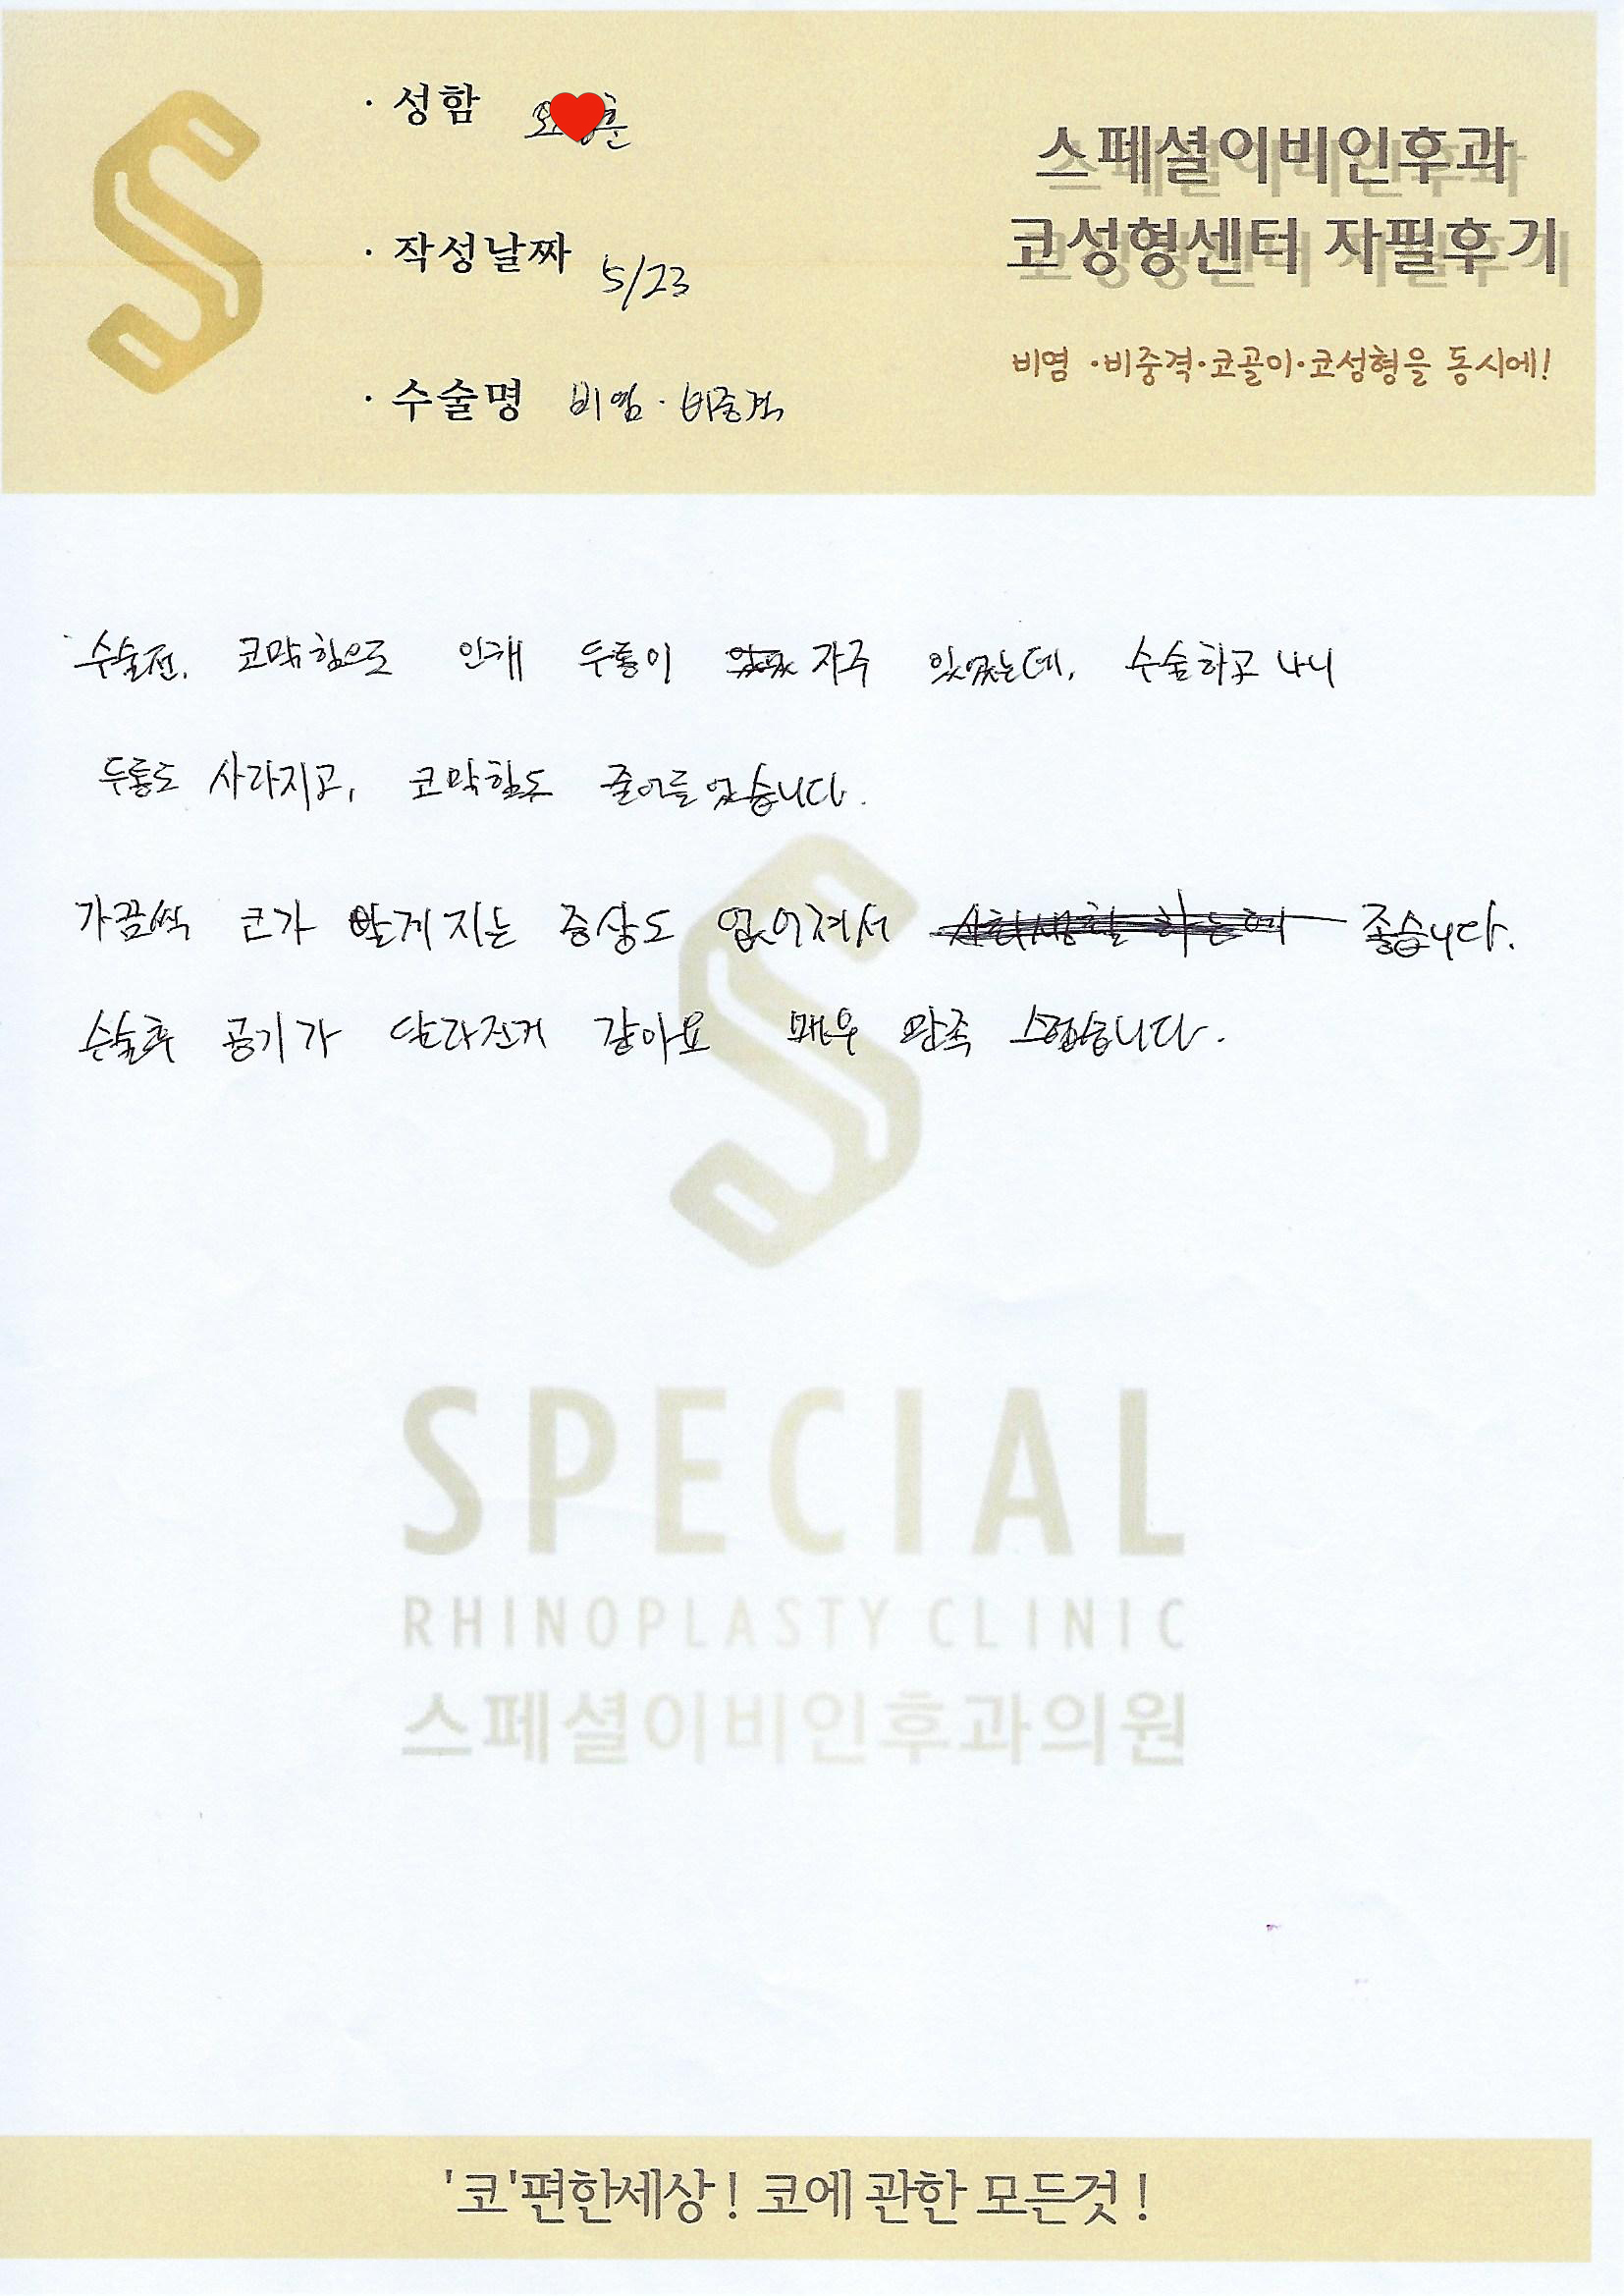 · 성함
스페셜이비인후과
· 작성날짜 5/23
코성형센터 자필후기
비염 ·비중격·코골이·코성형을 동시에!
· 수술명 비염 · 비중격
수술전. 코막힘으로 인해 두통이 자주 있었는데, 수술하고 나니
두통도 사라지고, 코막힘도 줄어들었습니다.
가끔씩 코가 빨게지는 증상도 없어져서 사회생활 하는데 좋습니다.
수술후 공기가 달라진거 같아요 매우 만족스럽습니다.
SPECIAL
RHINOPLASTY CLINIC
스페셜이비인후과의원
'코'편한세상! 코에 관한 모든것!